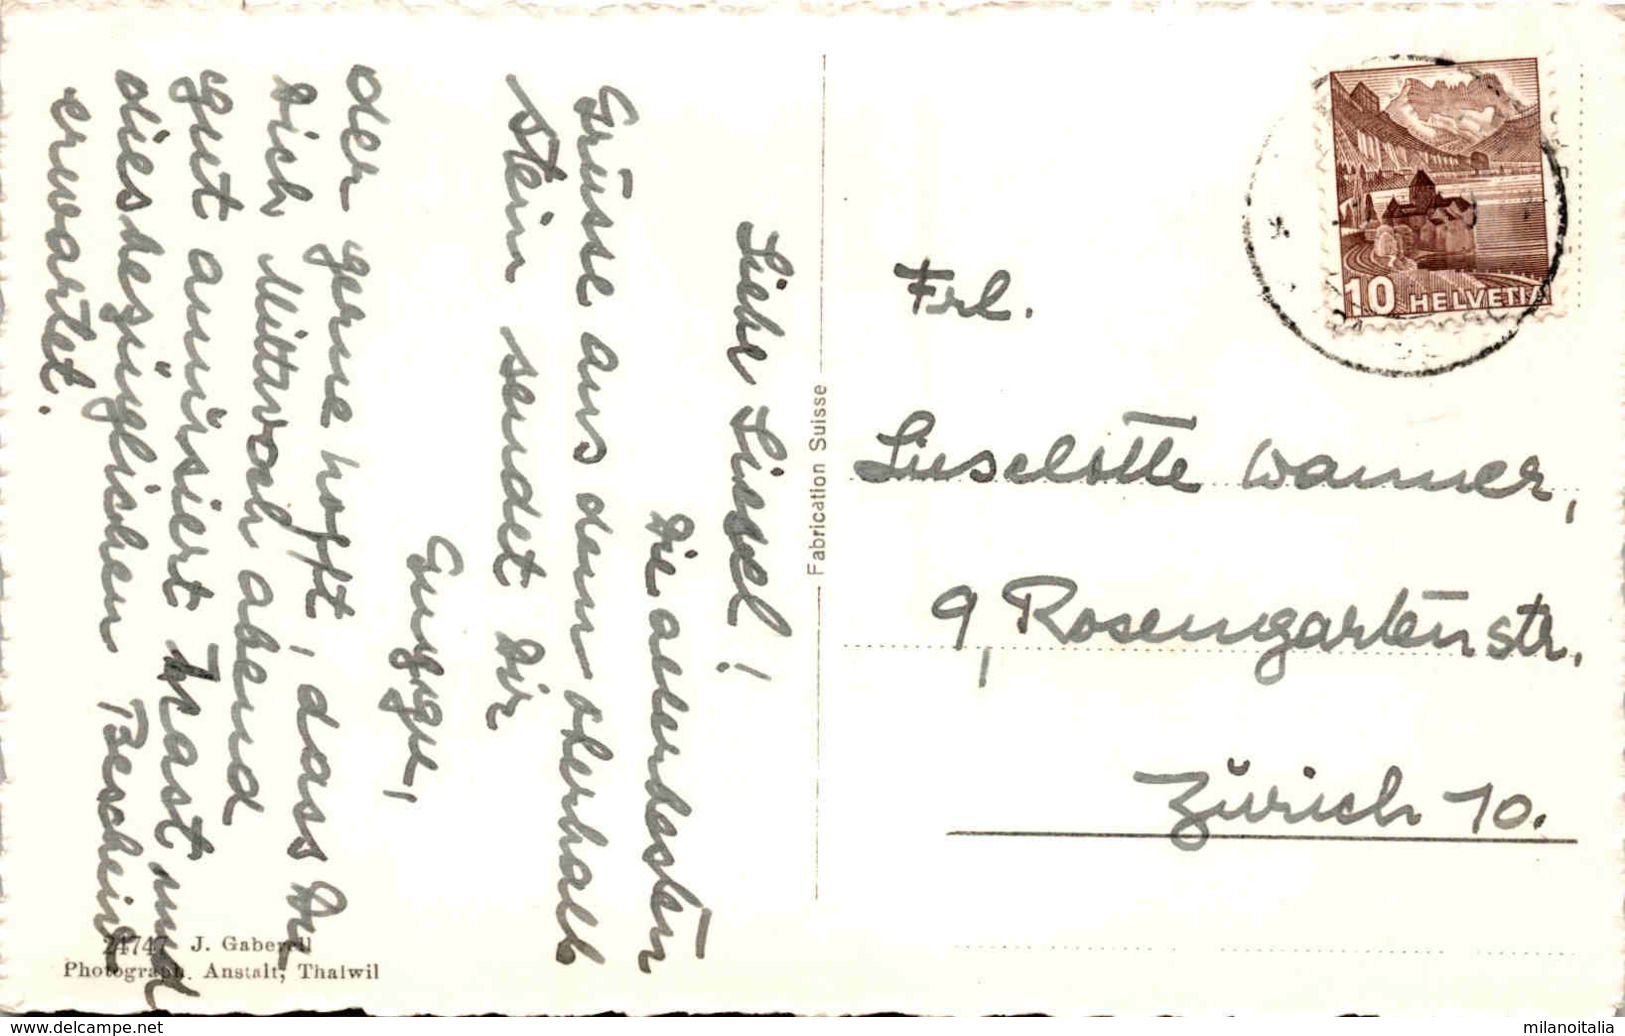 Liebe Liesel!
Die allerbesten
Grüsse aus dem oberhalb
stein sendet Dir
der gerne hofft, dass Du
Dich Mittwoch abend
gut amüsiert hast und
diesbezüglichen Bescheid
erwartet.
Fabrication Suisse
Frl.
Lieselotte Wanner,
9, Rosengartenstr.
Zürich 10.
10 HELVETIA
24747 J. Gaberell
Photograph. Anstalt, Thalwil
www.delcampe.net
milanoitalia